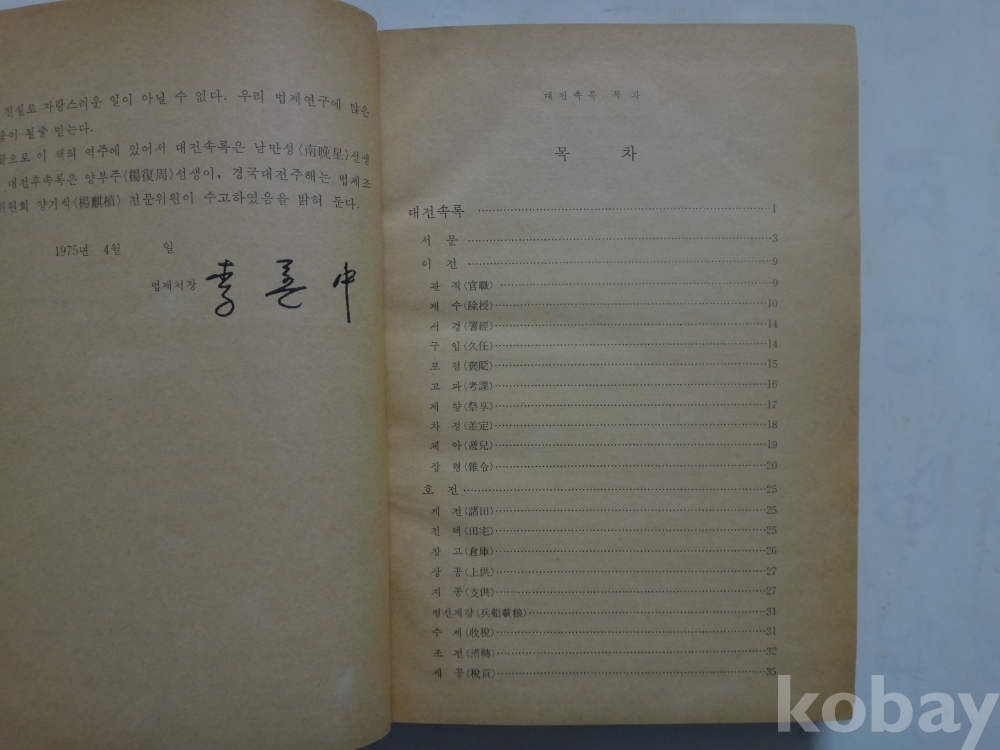 진실로 자랑스러운 일이 아닐 수 없다. 우리 법제연구에 많은
될줄 믿는다.
끝으로 이 책의 역주에 있어서 대전속록은 남만성(南晩星)선생
대전후속록은 양부주(楊復周)선생이, 경국대전주해는 법제조
위원회 양기식(楊麒植) 전문위원이 수고하였음을 밝혀 둔다.
1975년 4월 일
법제처장 李 中
대전속록 목차
목 차
대전속록 1
서 문 3
이 전 9
관 직(官職) 9
제 수(除授) 10
서 경(署經) 14
구 임(久任) 14
포 폄(褒貶) 15
고 과(考課) 16
제 향(祭享) 17
차 정(差定) 18
체 아(遞兒) 19
잡 령(雜令) 20
호 전 25
제 전(諸田) 25
전 택(田宅) 25
창 고(倉庫) 26
상 공(上供) 27
지 공(支供) 27
병선재량(兵船載粮) 31
수 세(收稅) 31
조 전(漕轉) 32
세 공(稅貢) 35
kobay